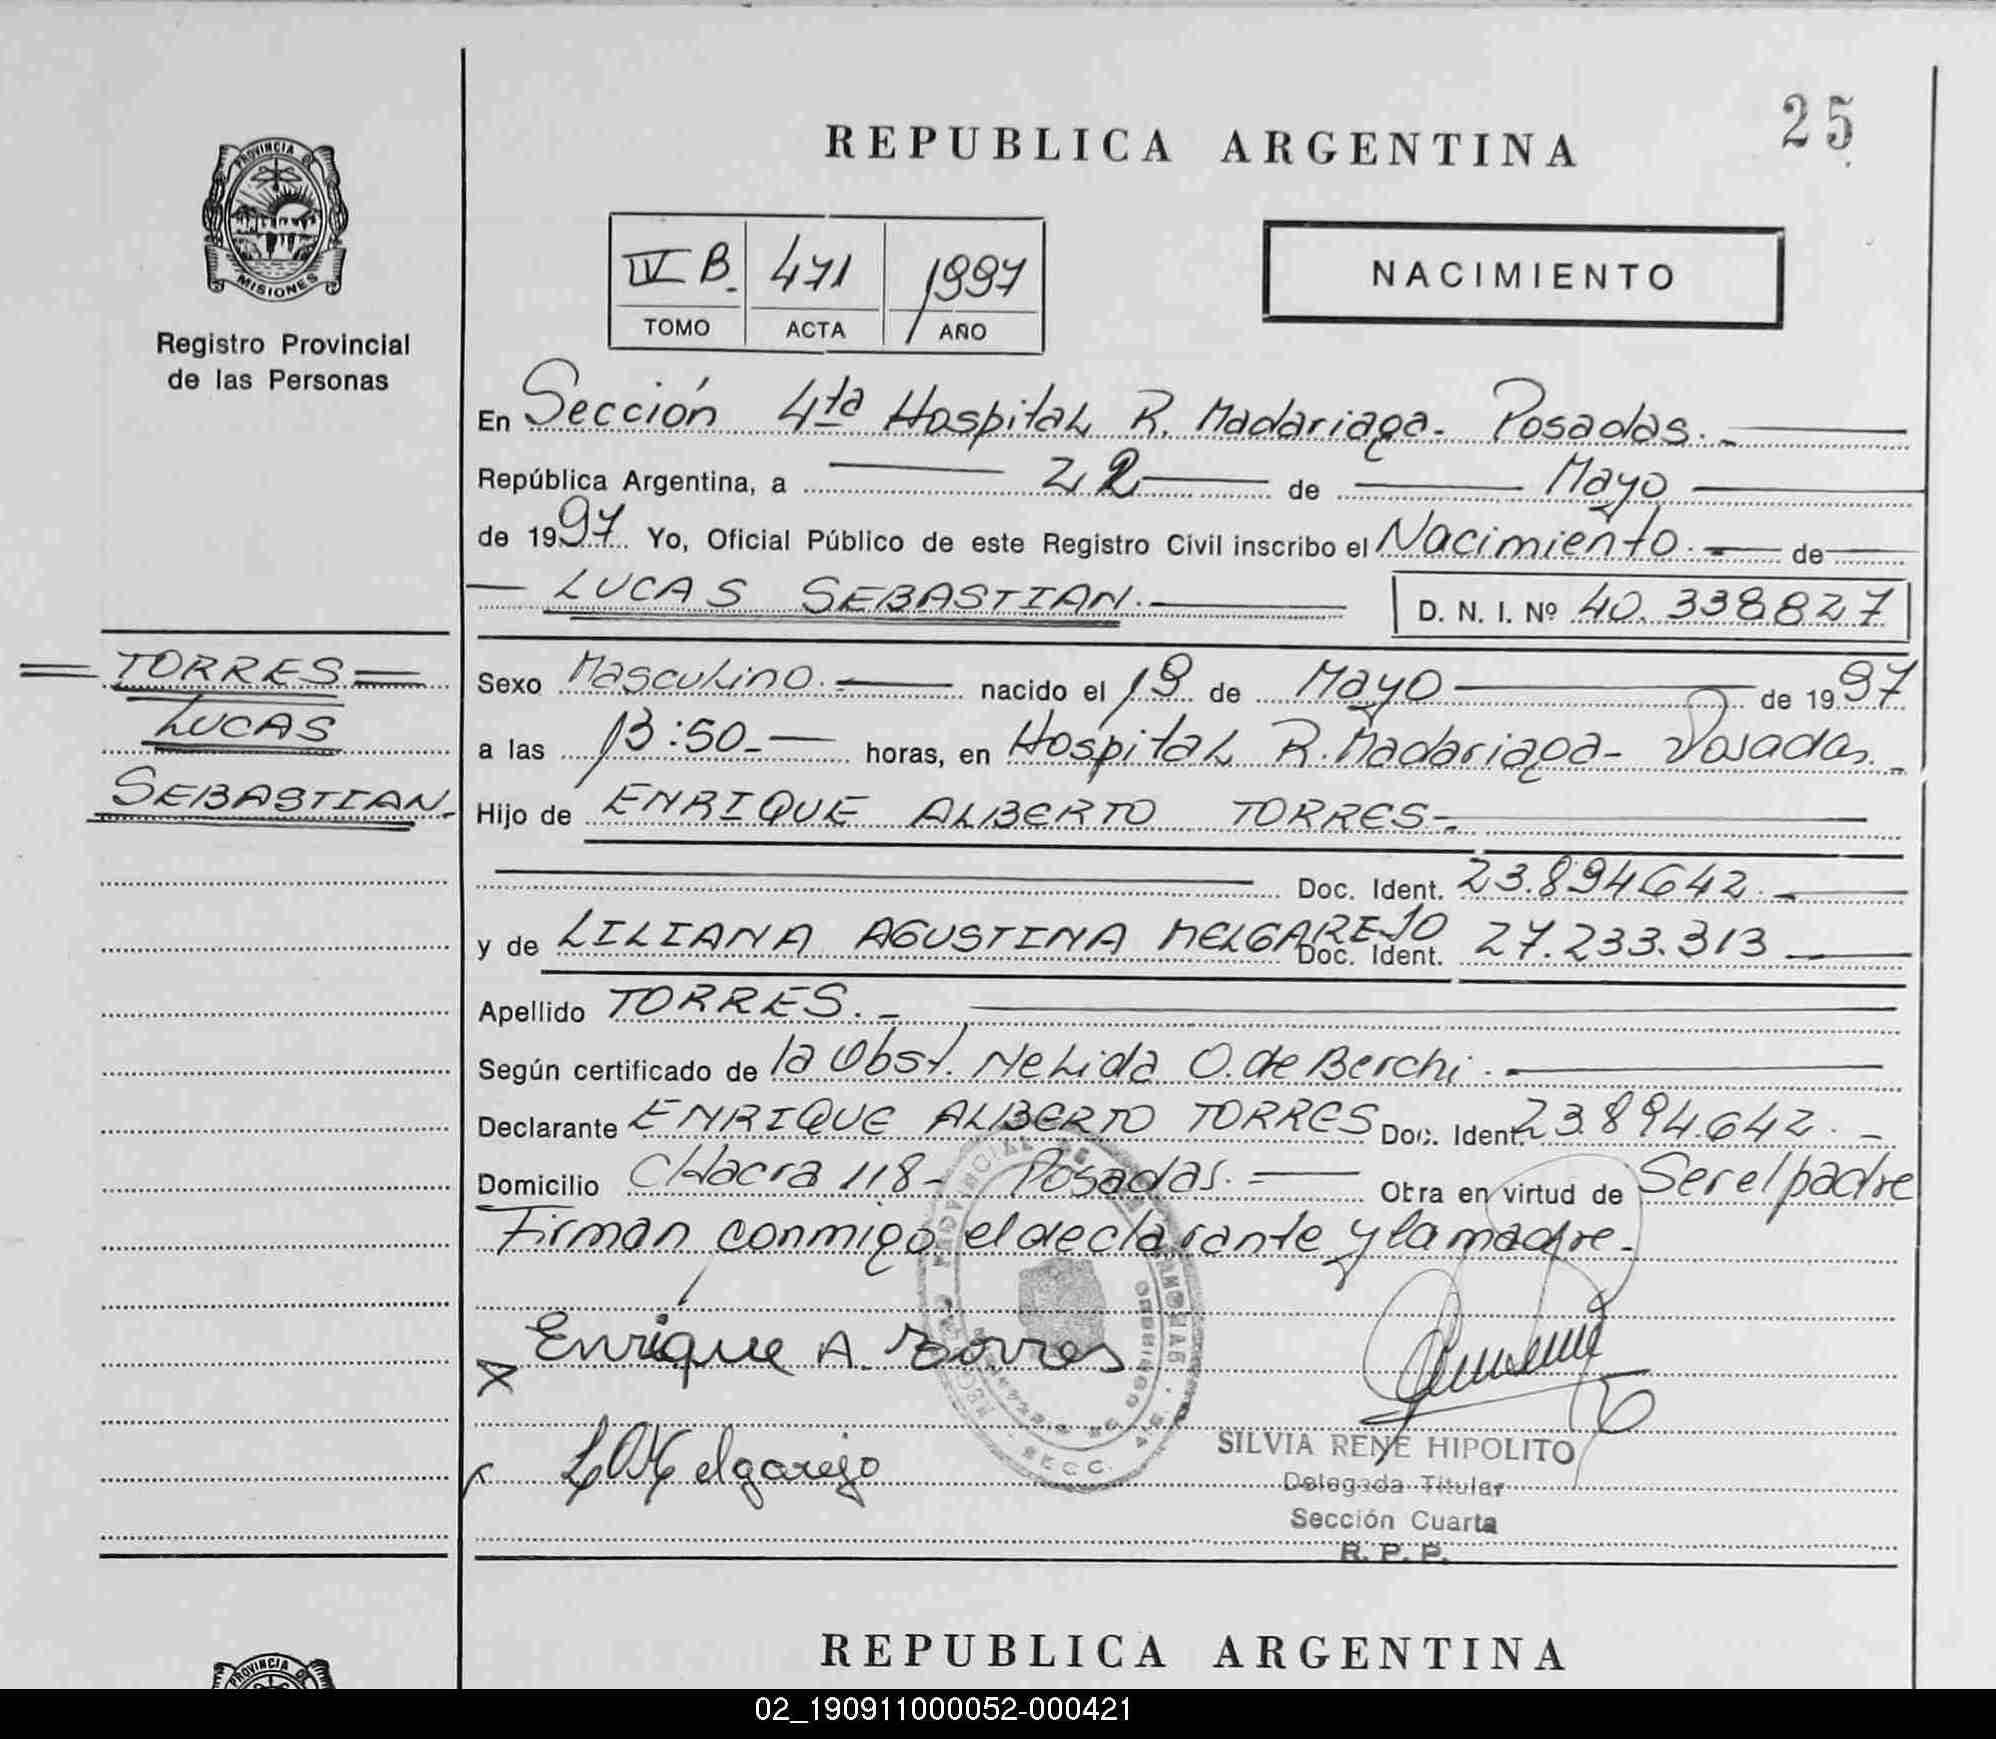 25
REPUBLICA ARGENTINA
PROVINCIA DE
MISIONES
Registro Provincial
de las Personas
IV B. 471 1997
TOMO ACTA AÑO
NACIMIENTO
En Sección 4ta Hospital R. Madariaga - Posadas.-
República Argentina, a 22 de Mayo
de 1997 Yo, Oficial Público de este Registro Civil inscribo el Nacimiento.- de
LUCAS SEBASTIAN.- D. N. I. Nº 40.338827
TORRES
LUCAS
SEBASTIAN.
Sexo Masculino.- nacido el 19 de Mayo de 1997
a las 13:50.- horas, en Hospital R. Madariaga - Posadas.-
Hijo de ENRIQUE ALBERTO TORRES-.
Doc. Ident. 23.894642.-
y de LILIANA AGUSTINA MELGAREJO Doc. Ident. 27.233.313
Apellido TORRES.-
Según certificado de la Obst. Nelida O. de Berchi.
Declarante ENRIQUE ALBERTO TORRES Doc. Ident. 23.894.642.-
Domicilio CHacra 118- Posadas.- Obra en virtud de Ser el padre
Firman conmigo el declarante y la madre.-
Enrique A. Torres
L A Melgarejo
SECC. 4ta.
SILVIA RENE HIPOLITO
Delegada Titular
Sección Cuarta
R. P. P.
REPUBLICA ARGENTINA
PROVINCIA DE
02_190911000052-000421